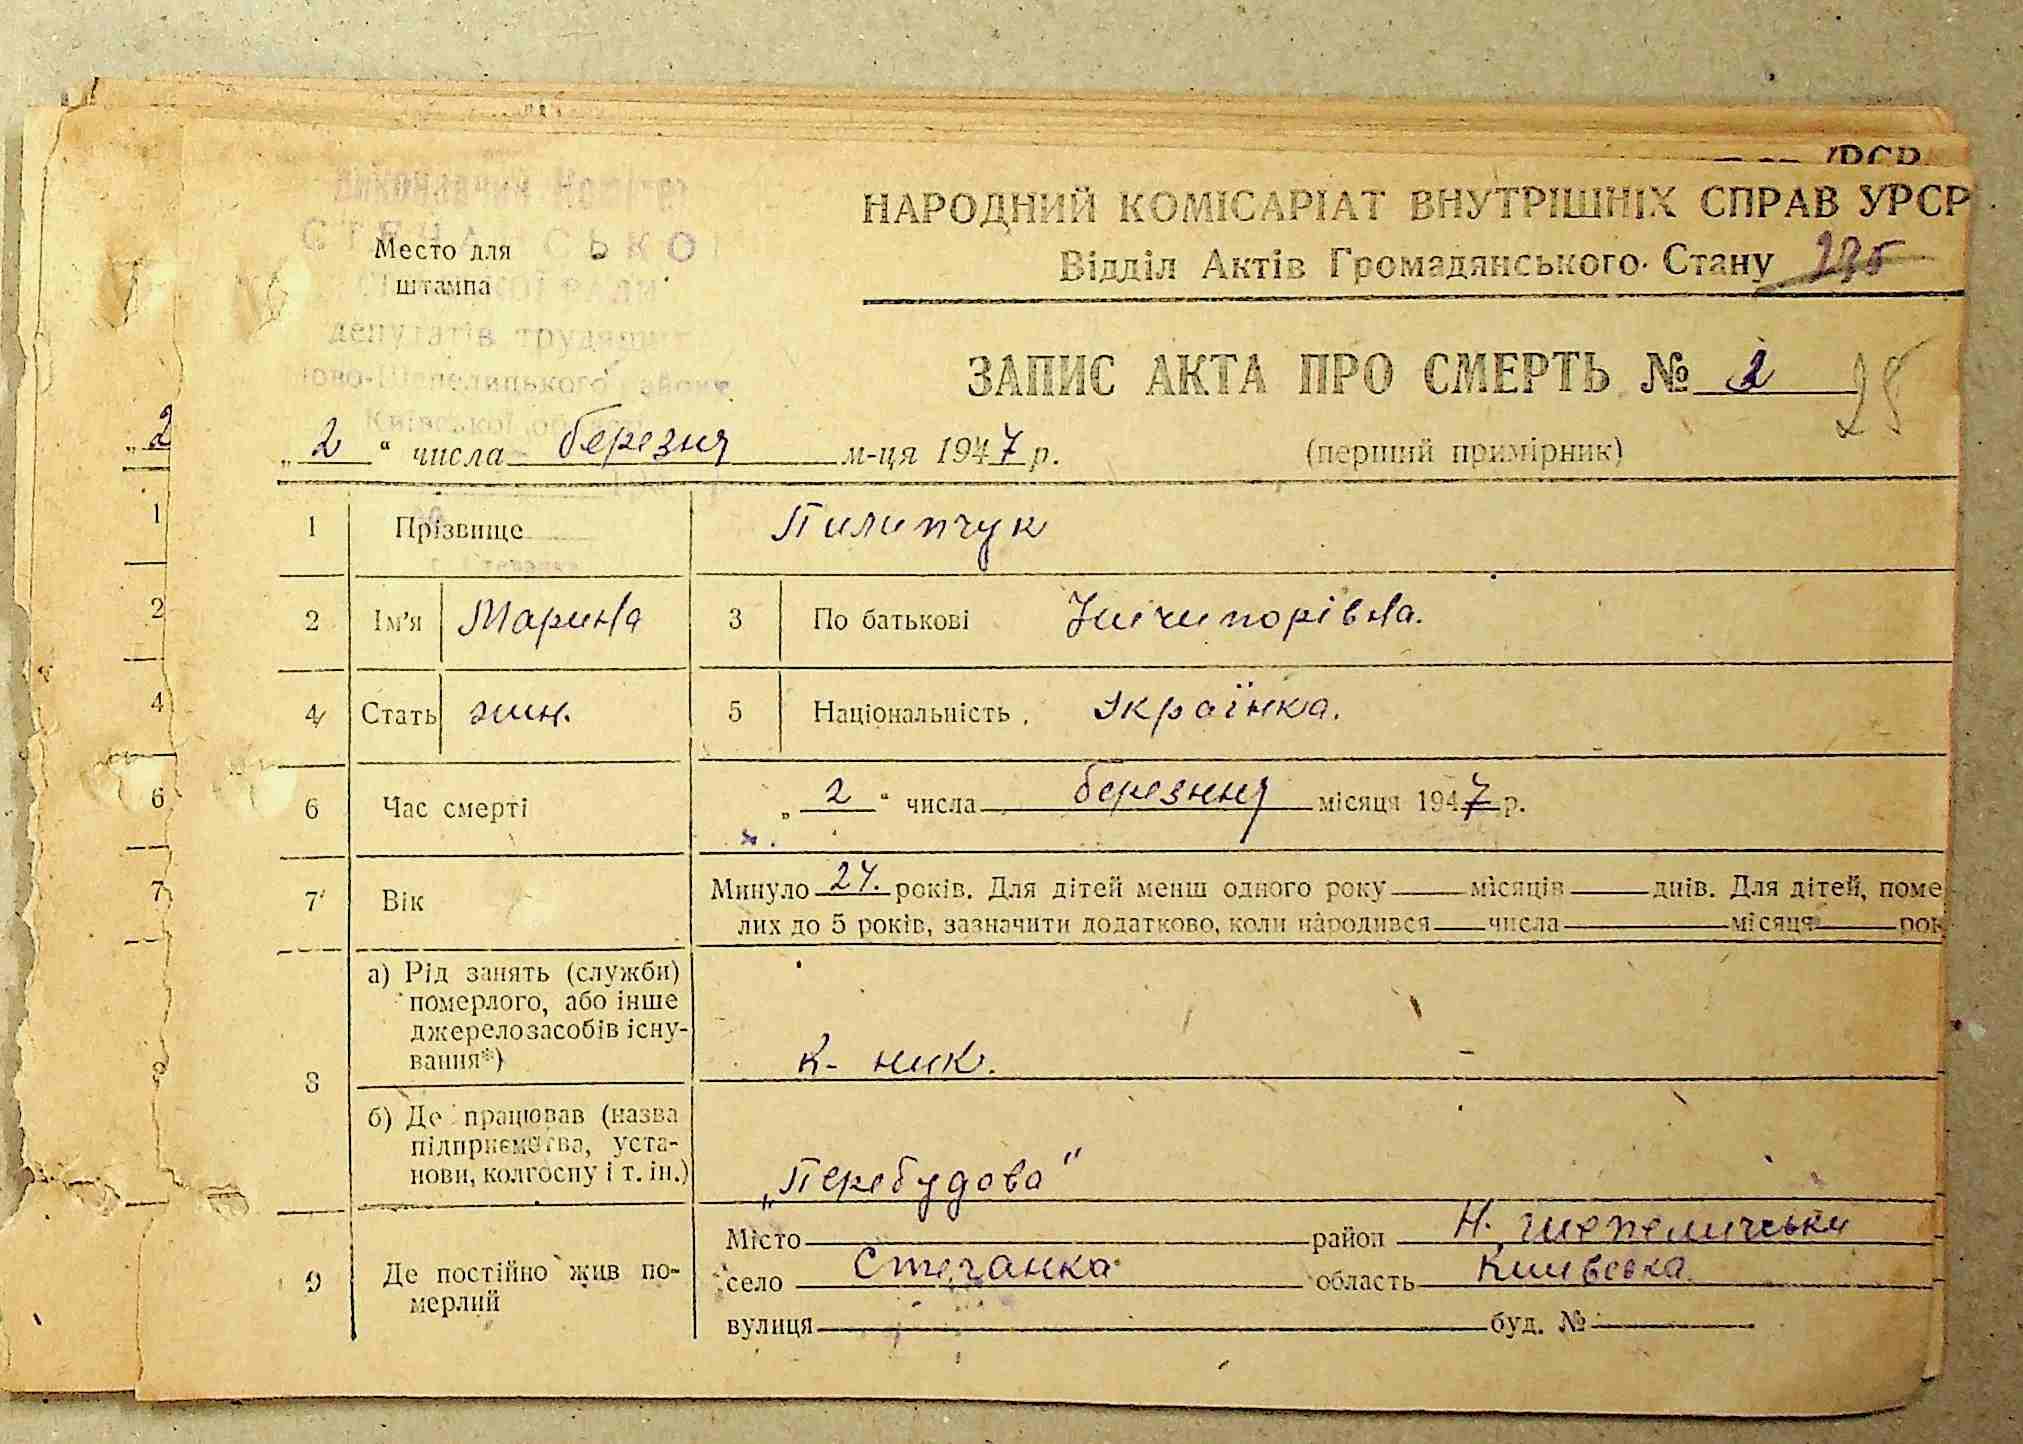 УРСР
Виконавчий Комітет
СТЕЧАНСЬКОЇ
Место для
штампа
СІЛЬСЬКОЇ РАДИ
депутатів трудящих
Ново-Шепелицького району
Київської області
НАРОДНИЙ КОМІСАРІАТ ВНУТРІШНІХ СПРАВ УРСР
Відділ Актів Громадянського Стану
ЗАПИС АКТА ПРО СМЕРТЬ № 2
28
„ 2 “ числа березня м-ця 1947 р. (перший примірник)
1 Прізвище Пилипчук
2 Ім'я Марина 3 По батькові Ничипорівна.
4 Стать жин. 5 Національність Українка.
6 Час смерті „ 2 “ числа березння місяця 1947 р.
7 Вік Минуло 24. років. Для дітей менш одного року місяців днів. Для дітей, поме
лих до 5 років, зазначити додатково, коли народився числа місяця рок
8 а) Рід занять (служби)
померлого, або інше
джерело засобів існу-
вання*) К- ник.
б) Де працював (назва
підприємства, уста-
нови, колгоспу і т. ін.) „Перебудова“
9 Де постійно жив по-
мерлий
Місто район Н. Шепеличський
село Стечанка область Киівська
вулиця буд. №
„ 2
1
2
4
6
7